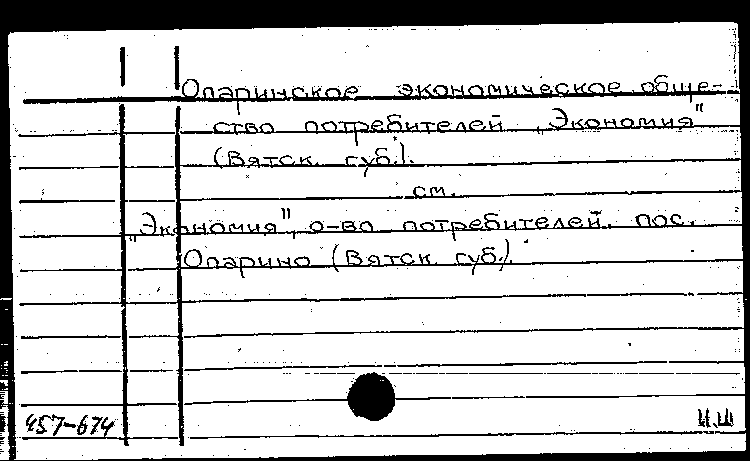 Опаринское экономическое обще-
ство потребителей „Экономия"
(Вятск. губ.).
см.
„Экономия", о-во потребителей, пос.
Опарино (Вятск. губ.).
457-674
И.Ш